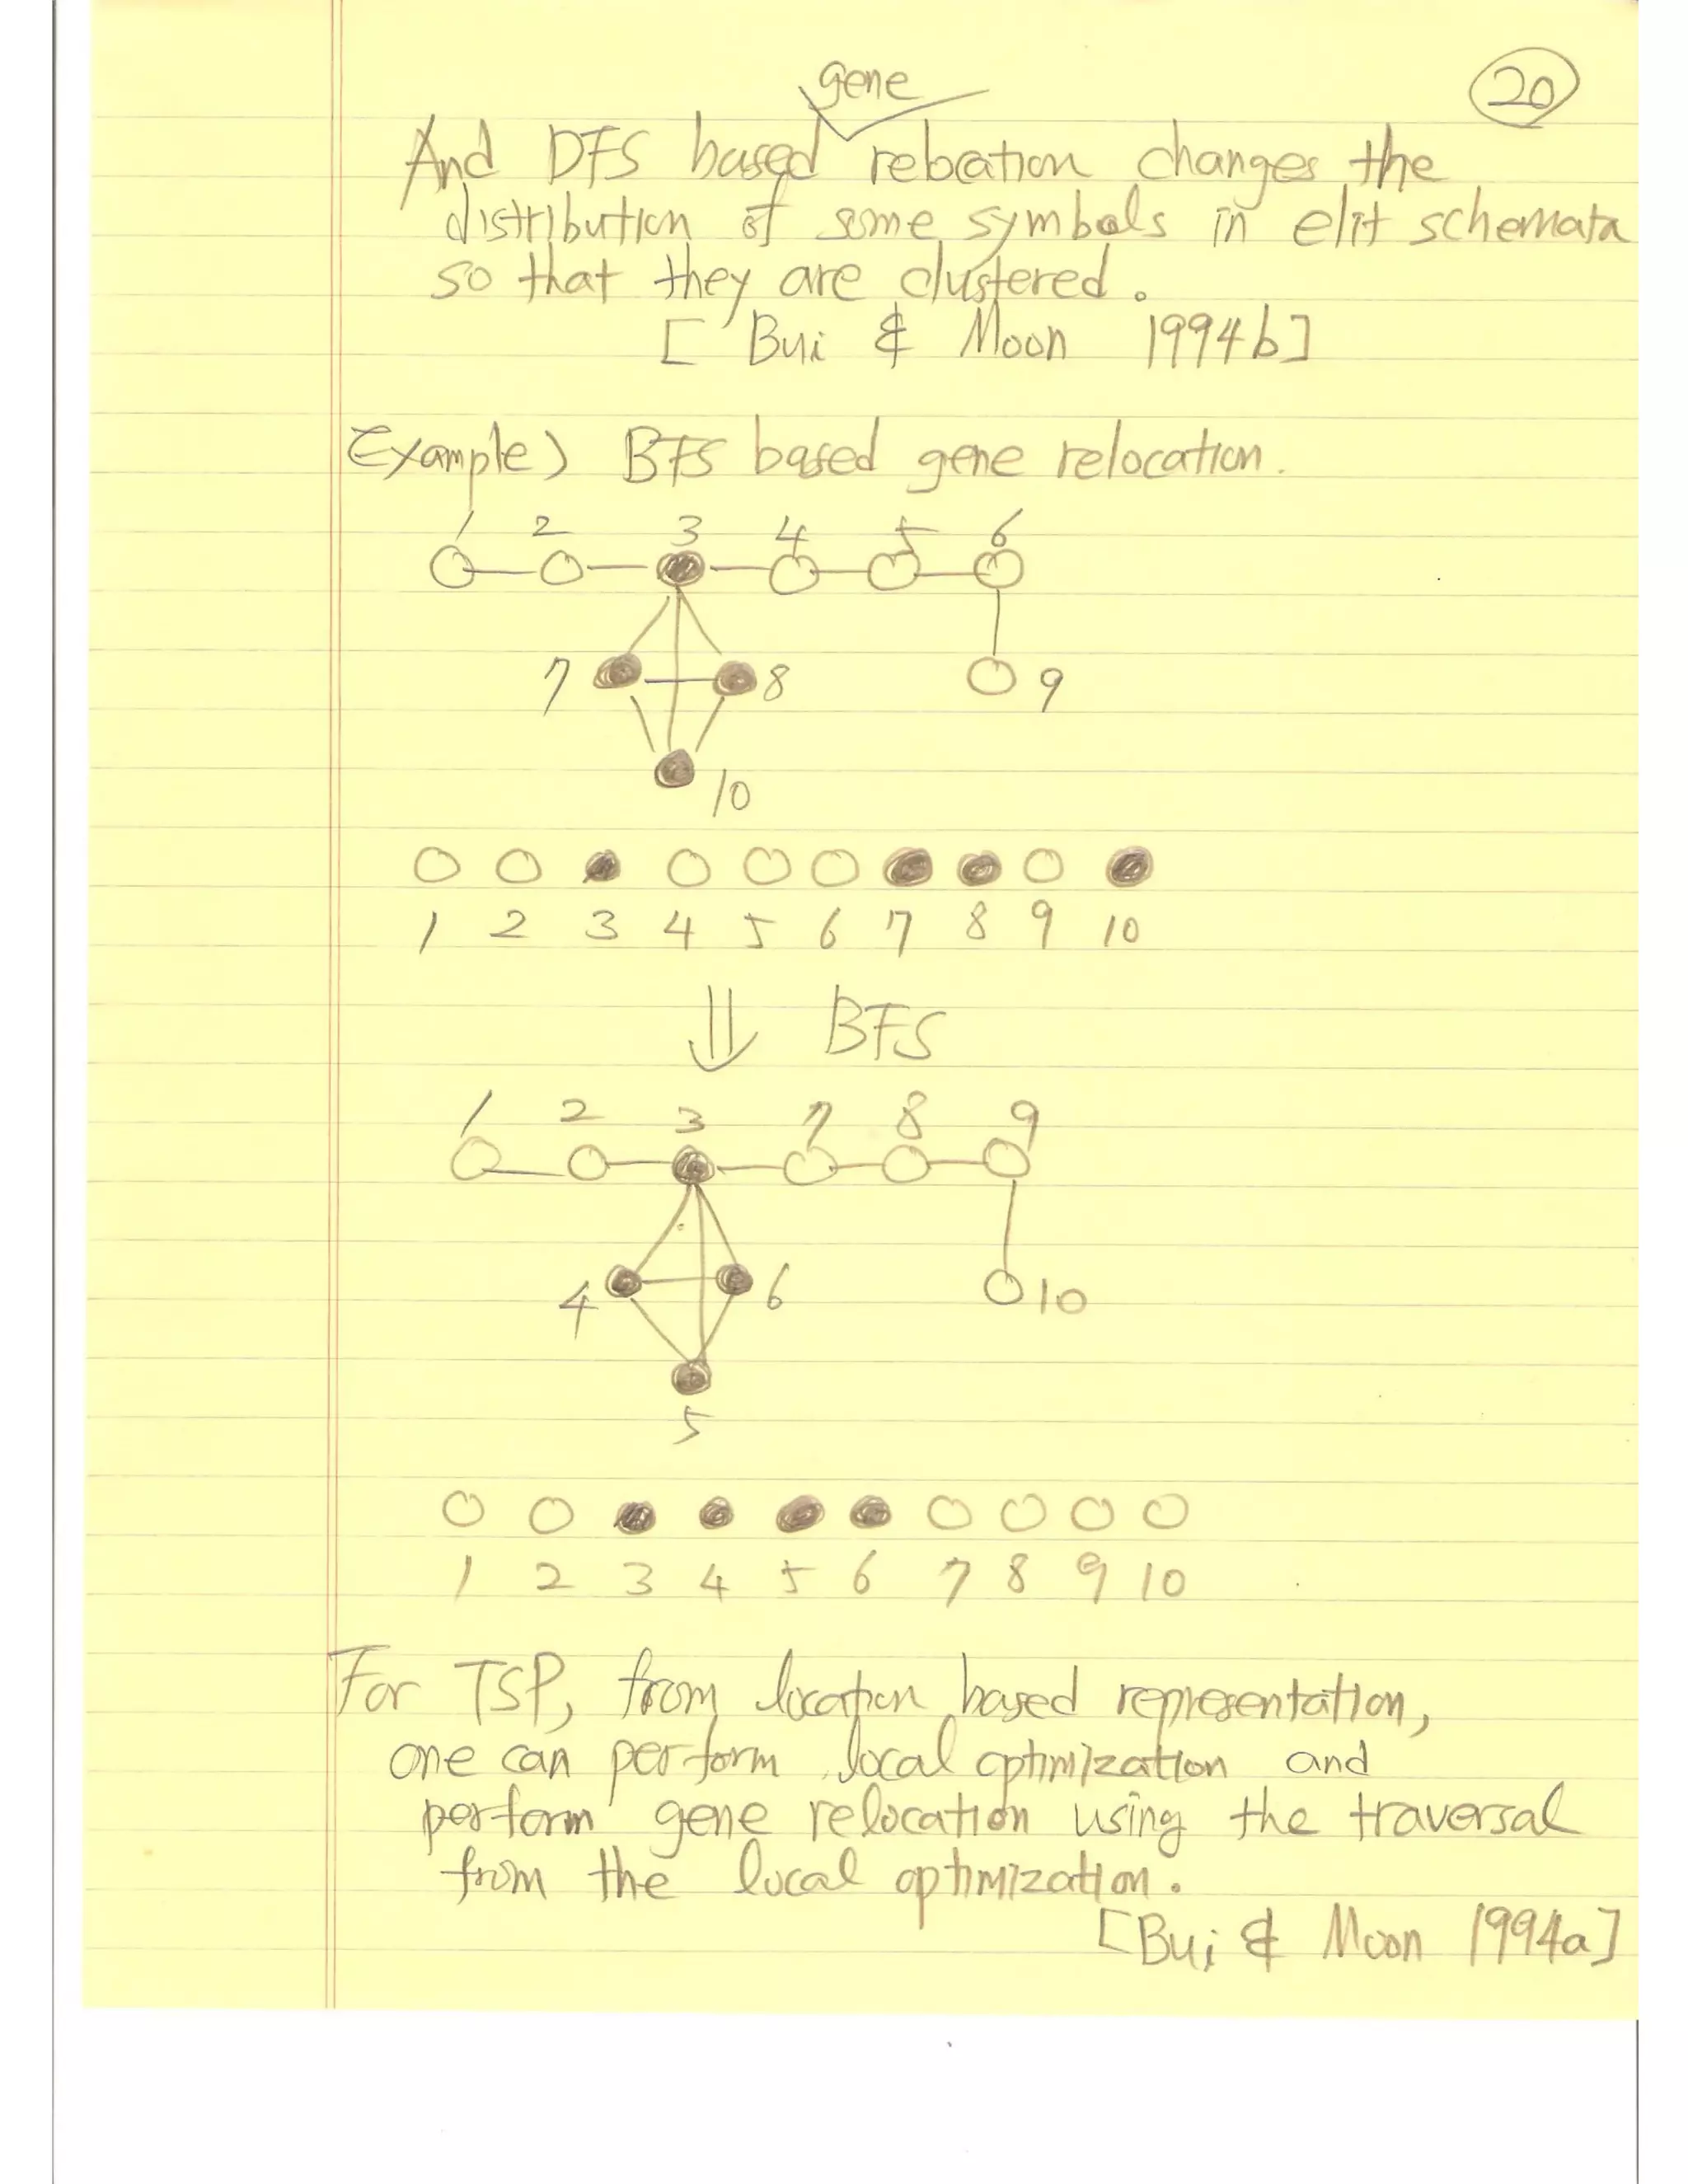 20
gene
And DFS based relocation changes the
distribution of some symbols in elit schemata
so that they are clustered.
[ Bui & Moon 1994b]
Example) BFS based gene relocation.
1 2 3 4 5 6
7 8 9
10
1 2 3 4 5 6 7 8 9 10
⇓ BFS
1 2 3 7 8 9
4 6 10
5
1 2 3 4 5 6 7 8 9 10
For TSP, from location based representation,
one can perform local optimization and
perform gene relocation using the traversal
from the local optimization.
[Bui & Moon 1994a]